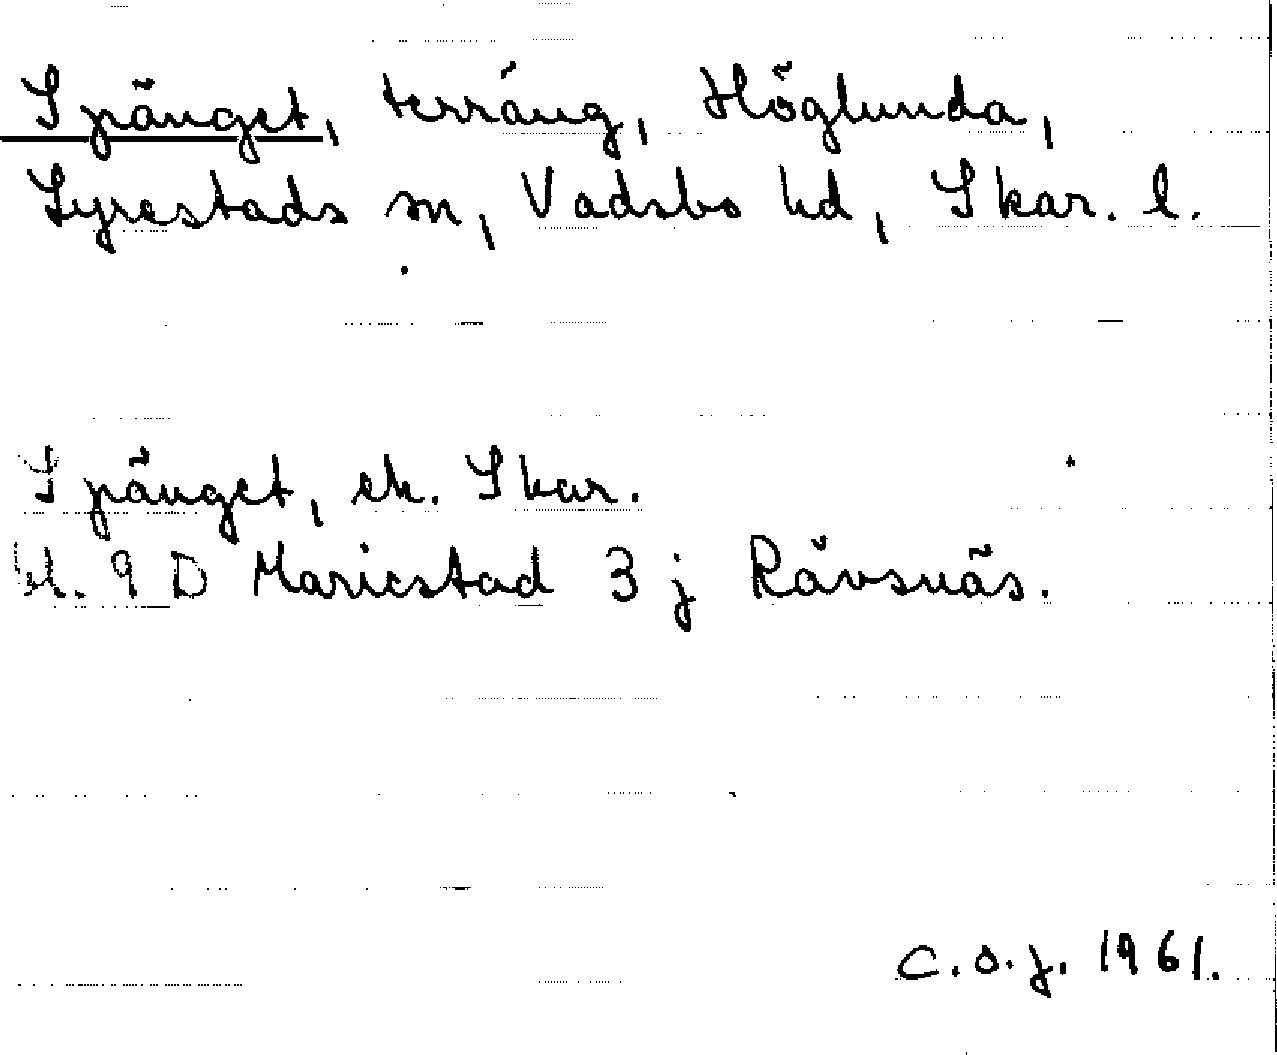 Spänget, terräng, Höglunda,
Lyrestads sn, Vadsbo hd, Skar. l.
Spänget, ek. Skar.
bl. 9 D Mariestad 3 j Rävsnäs.
C.O.J. 1961.